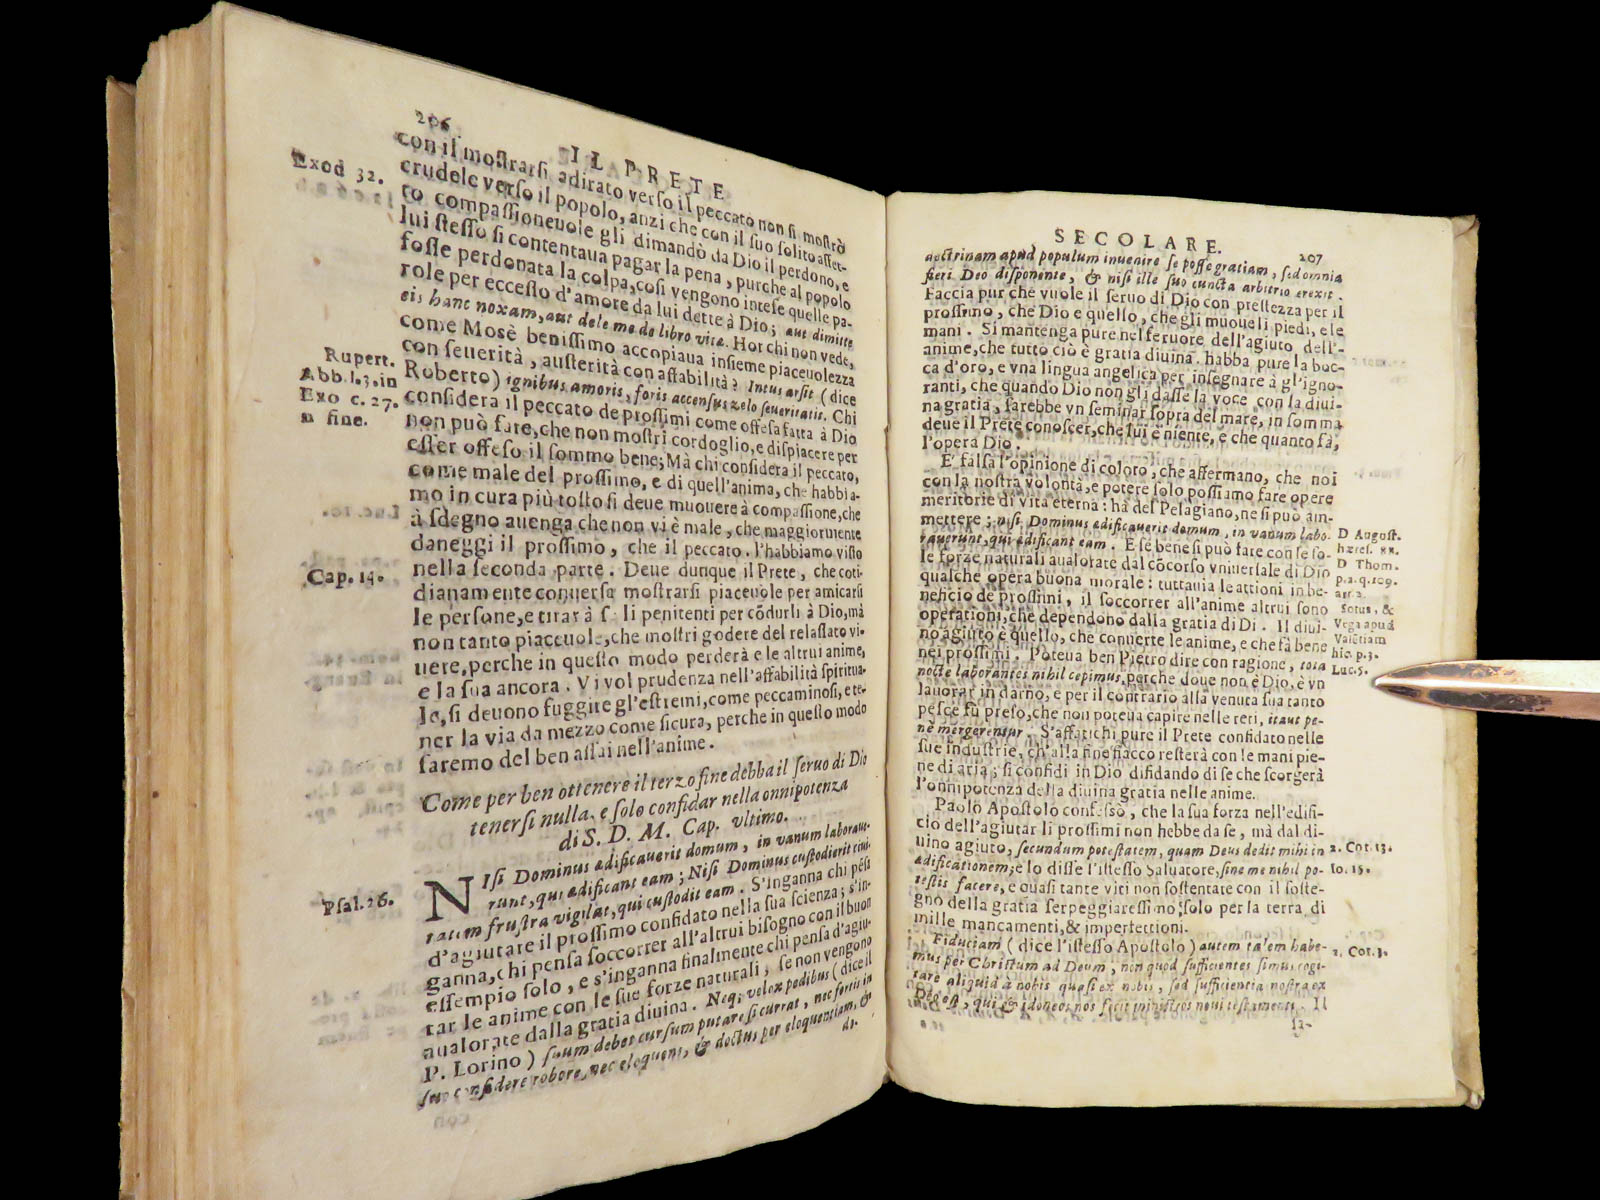 206
IL PRETE
con il mostrarsi adirato verso il peccato non si mostrò
Exod 32.
crudele verso il popolo, anzi che con il suo solito affet-
to compassioneuole gli dimandò da Dio il perdono, e
lui stesso si contentaua pagar la pena, purche al popolo
fosse perdonata la colpa, così vengono intese quelle pa-
role per eccesso d'amore da lui dette à Dio; aut dimitte
eis hanc noxam, aut dele me de libro vitæ. Hor chi non vede,
come Mosè benissimo accopiaua insieme piaceuolezza
con seuerità, austerità con affabilità? Intus arsit (dice
Rupert.
Abb l.3. in
Exo c. 27.
in fine.
Roberto) ignibus amoris, foris accensus zelo seueritatis. Chi
considera il peccato de prossimi come offesa fatta à Dio
non può fare, che non mostri cordoglio, e dispiacere per
esser offeso il sommo bene; Mà chi considera il peccato,
come male del prossimo, e di quell'anima, che habbia-
mo in cura più tosto si deue muouere à compassione, che
à sdegno auenga che non vi è male, che maggiormente
daneggi il prossimo, che il peccato. l'habbiamo visto
Cap. 14.
nella seconda parte. Deue dunque il Prete, che coti-
dianamente conuersa mostrarsi piaceuole per amicarsi
le persone, e tirar à se li penitenti per cõdurli à Dio, mà
non tanto piaceuole, che mostri godere del relassato vi-
uere, perche in questo modo perderà e le altrui anime,
e la sua ancora. Vi vol prudenza nell'affabilità spiritua-
le, si deuono fuggire gl'estremi, come peccaminosi, e te-
ner la via da mezzo come sicura, perche in questo modo
faremo del ben assai nell'anime.
Come per ben ottenere il terzo fine debba il seruo di Dio
tenersi nulla, e solo confidar nella onnipotenza
di S. D. M. Cap. vltimo.
Psal. 26.
NIsi Dominus ædificauerit domum, in vanum laboraue-
runt, qui ædificant eam; Nisi Dominus custodierit ciui-
tatem frustra vigilat, qui custodit eam. S'inganna chi pẽsa
d'agiutare il prossimo confidato nella sua scienza; s'in-
ganna, chi pensa soccorrer all'altrui bisogno con il buon
essempio solo, e s'inganna finalmente chi pensa d'agiu-
tar le anime con le sue forze naturali, se non vengono
aualorate dalla gratia diuina. Neq; velox pedibus (dice il
P. Lorino) suum debet cursum putare si currat, nec fortis in
suo confidere robore, nec eloquens, & doctus per eloquentiam, &
do-
SECOLARE.
207
doctrinam apud populum inuenire se posse gratiam, sed omnia
fieri Deo disponente, & nisi ille suo cuncta arbitrio erexit.
Faccia pur che vuole il seruo di Dio con prestezza per il
prossimo, che Dio e quello, che gli muoue li piedi, e le
mani. Si mantenga pure nel feruore dell'agiuto dell'-
anime, che tutto ciò è gratia diuina. habba pure la boc-
ca d'oro, e vna lingua angelica per insegnare à gl'igno-
ranti, che quando Dio non gli dasse la voce con la diui-
na gratia, sarebbe vn seminar sopra del mare, in somma
deue il Prete conoscer, che lui è niente, e che quanto fà,
l'opera Dio.
E' falsa l'opinione di coloro, che affermano, che noi
con la nostra volontà, e potere solo possiamo fare opere
meritorie di vita eterna: hà del Pelagiano, ne si può am-
mettere; nisi Dominus ædificauerit domum, in vanum labo-
rauerunt, qui ædificant eam. E se bene si può fare con le so-
le forze naturali aualorate dal cõcorso vniuersale di Dio
qualche opera buona morale: tuttauia le attioni in be-
neficio de prossimi, il soccorrer all'anime altrui sono
operationi, che dependono dalla gratia di Di. Il diui-
no agiuto è quello, che conuerte le anime, e che fà bene
D August.
hæres. 88.
D Thom.
p. 2. q. 109.
art 2.
Sotus, &
Vega apud
Valẽtiam
hic p. 3.
Luc. 5.
nei prossimi. Poteua ben Pietro dire con ragione, tota
nocte laborantes nihil cepimus, perche doue non è Dio, è vn
lauorar in darno, e per il contrario alla venuta sua tanto
pesce fù preso, che non poteua capire nelle reti, ita vt pe-
nè mergerentur. S'affatichi pure il Prete confidato nelle
sue industrie, ch'alla fine fiacco resterà con le mani pie-
ne di aria; si confidi in Dio difidando di se che scorgerà
l'onnipotenza della diuina gratia nelle anime.
Paolo Apostolo confessò, che la sua forza nell'edifi-
cio dell'agiutar li prossimi non hebbe da se, mà dal di-
uino agiuto, secundum potestatem, quam Deus dedit mihi in
2. Cor. 13.
ædificationem; e lo disse l'istesso Saluatore, sine me nihil po-
Io. 15.
testis facere, e quasi tante viti non sostentate con il soste-
gno della gratia serpeggiaressimo; solo per la terra di
mille mancamenti, & imperfettioni.
Fiduciam (dice l'istesso Apostolo) autem talem habe-
2. Cor. 3.
mus per Christum ad Deum, non quod sufficientes simus cogi-
tare aliquid à nobis quasi ex nobis, sed sufficientia nostra ex
Deo est, qui & idoneos nos fecit ministros noui testamenti. Il